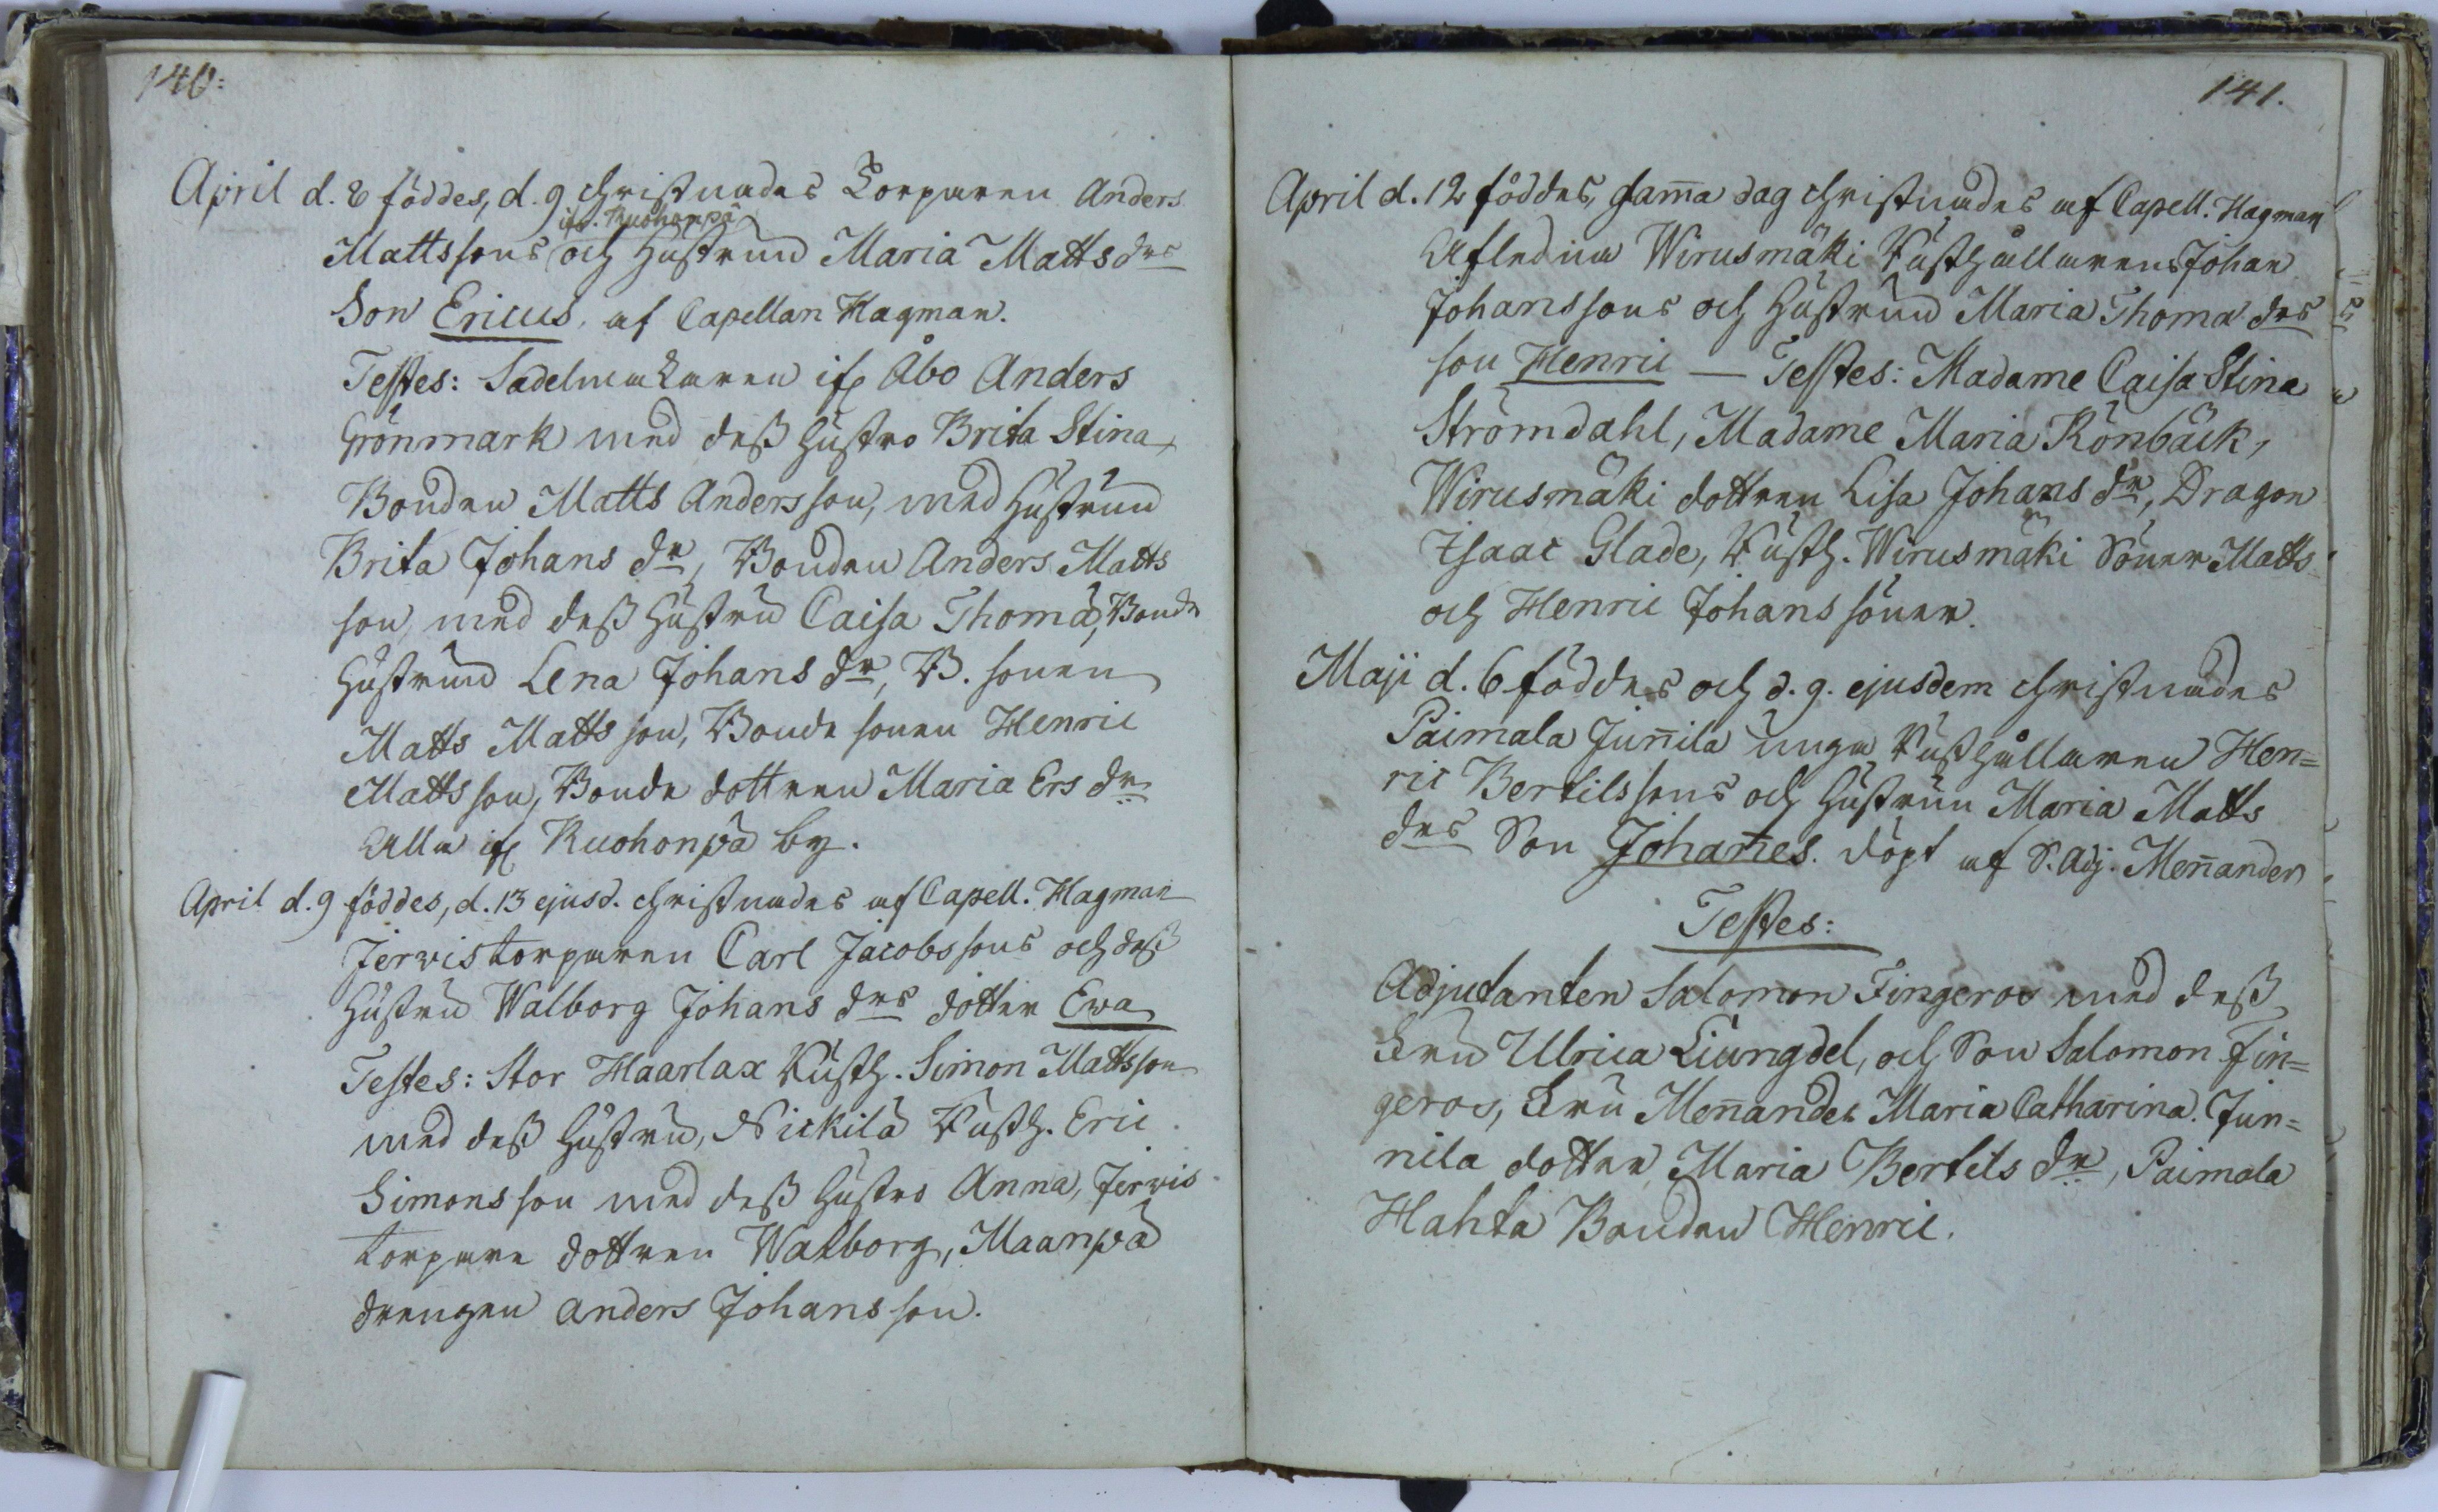 140:
April d. 8 föddes, d. 9 christnades Torparen Anders
ifr. Kuohonpä
Mattssons och Hustrun Maria Matts drs
Son Ericus, af Capellan Hagman.
Testes: Sadelmakaren ifr Åbo Anders
Grönmark med dess Hustro Brita Stina,
Bonden Matts Andersson, med Hustrun
Brita Johans dr, Bonden Anders Matts
son, med dess Hustru Caisa Thomä, Bonde
Hustrun Lena Johans dr, B. sonen
Matts Mattsson, Bonde sonen Henric
Mattsson, Bonde dottren Maria Ers dr
Alla ifr Kuohonpä by.
April d. 9 föddes, d. 13 ejusd. christnades af Capell. Hagman
Jervis torparen Carl Jacobssons och dess
Hustru Walborg Johans drs dotter Ewa
Testes: Stor Haarlax Rusth. Simon Mattsson
med dess Hustru, Nickilä Rusth. Eric
Simonsson med dess Hustro Anna, Jervis
torpare dottren Walborg, Maanpä
drengen Anders Johansson.
141.
April d. 12 föddes, samma dag christnades af Capell. Hagman
Afledna Wirusmäki Rusthållarens Johan
Johanssons och Hustrun Maria Thomæ drs
son Henric — Testes: Madame Caisa Stina
Strömdahl, Madame Maria Rönbäck,
Wirusmäki dottren Lisa Johans dr, Dragon
Isaac Glade, Rusth. Wirusmäki Söner Matts
och Henric Johanssöner.
Maji d. 6 föddes och d. 9. ejusdem christnades
Paimala Juñila unga Rusthållaren Hen=
ric Bertilssons och Hustrun Maria Matts
drs Son Johañes. döpt af S. Adj. Meñander
Testes:
Adjutanten Salomon Fingeroos med dess
Fru Ulrica Liungdel, och Son Salomon Fin=
geroos, Fru Meñander Maria Catharina. Jun=
nila dotter, Maria Bertils dr, Paimala
Hahta Bonden Henric.